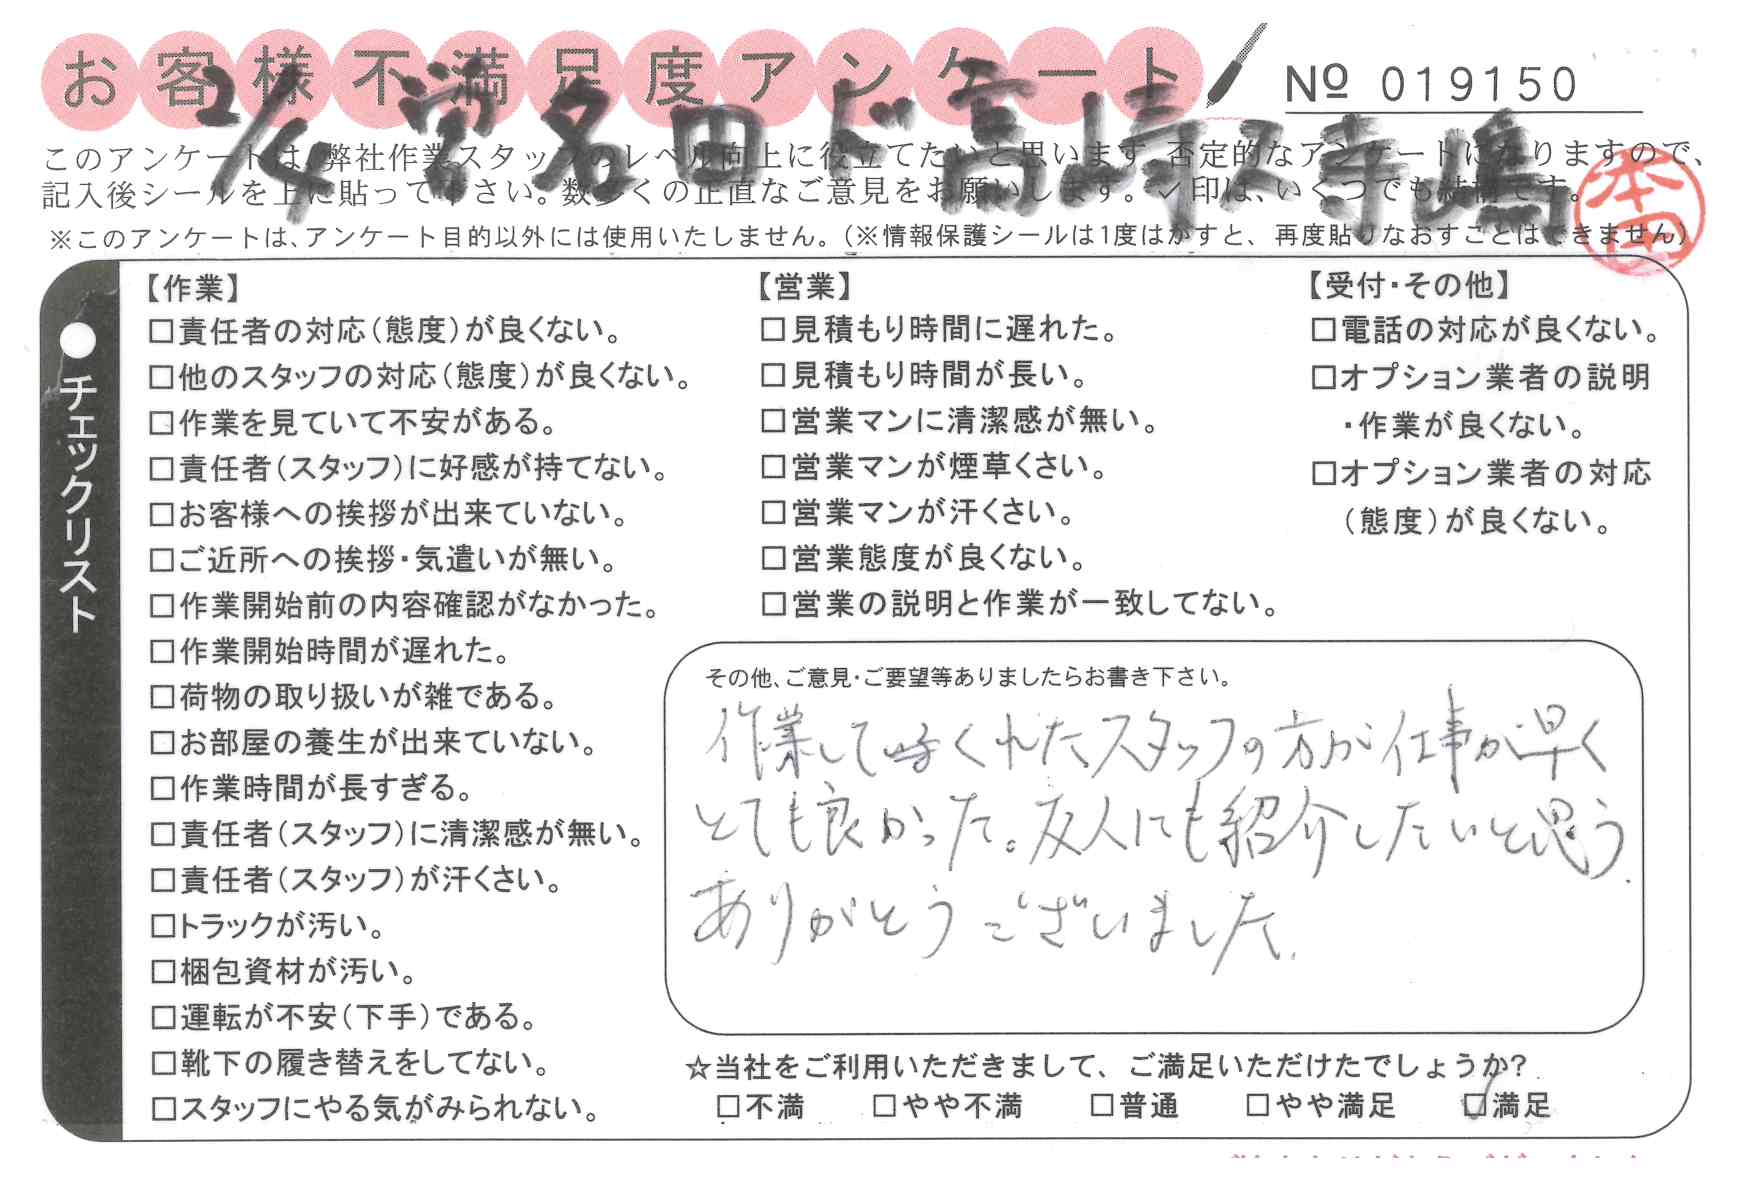 お客様不満足度アンケート
№ 019150
2/4 営 名田 ド高崎 ス寺嶋
このアンケートは、弊社作業スタッフのレベル向上に役立てたいと思います。否定的なアンケートになりますので、
記入後シールを上に貼って下さい。数多くの正直なご意見をお願いします。✓印は、いくつでも結構です。
本田
※このアンケートは、アンケート目的以外には使用いたしません。(※情報保護シールは1度はがすと、再度貼りなおすことはできません)
●チェックリスト
【作業】
□責任者の対応(態度)が良くない。
□他のスタッフの対応(態度)が良くない。
□作業を見ていて不安がある。
□責任者(スタッフ)に好感が持てない。
□お客様への挨拶が出来ていない。
□ご近所への挨拶・気遣いが無い。
□作業開始前の内容確認がなかった。
□作業開始時間が遅れた。
□荷物の取り扱いが雑である。
□お部屋の養生が出来ていない。
□作業時間が長すぎる。
□責任者(スタッフ)に清潔感が無い。
□責任者(スタッフ)が汗くさい。
□トラックが汚い。
□梱包資材が汚い。
□運転が不安(下手)である。
□靴下の履き替えをしてない。
□スタッフにやる気がみられない。
【営業】
□見積もり時間に遅れた。
□見積もり時間が長い。
□営業マンに清潔感が無い。
□営業マンが煙草くさい。
□営業マンが汗くさい。
□営業態度が良くない。
□営業の説明と作業が一致してない。
【受付・その他】
□電話の対応が良くない。
□オプション業者の説明
・作業が良くない。
□オプション業者の対応
(態度)が良くない。
その他、ご意見・ご要望等ありましたらお書き下さい。
作業してくれたスタッフの方が仕事が早く
とても良かった。友人にも紹介したいと思う.
ありがとうございました.
☆当社をご利用いただきまして、ご満足いただけたでしょうか?
□不満 □やや不満 □普通 □やや満足 ☑満足